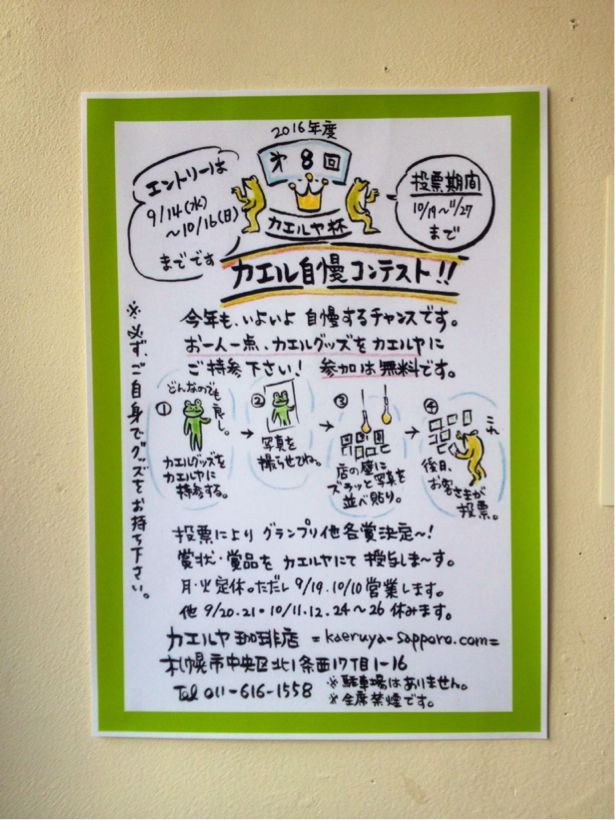 2016年度
第8回
カエルヤ杯
エントリーは
9/14(水)
～10/16(日)
までです
投票期間
10/19～11/27
まで
カエル自慢コンテスト!!
今年も、いよいよ自慢するチャンスです。
お一人一点、カエルグッズをカエルヤに
ご持参下さい! 参加は無料です。
※必ず、ご自身でグッズをお持ち下さい。
どんなのでも良し。
①
カエルグッズを
カエルヤに
持参する。
②
写真を
撮らせてね。
③
店の壁に
ズラッと写真を
並べ貼り。
④
後日、
お客さまが
投票。
投票によりグランプリ他各賞決定～!
賞状・賞品をカエルヤにて授与しま～す。
月・火定休。ただし9/19.10/10営業します。
他9/20.21・10/11.12.24～26休みます。
カエルヤ珈琲店 =kaeruya-sapporo.com=
札幌市中央区北1条西17丁目1-16
Tel 011-616-1558
※駐車場はありません。
※全席禁煙です。